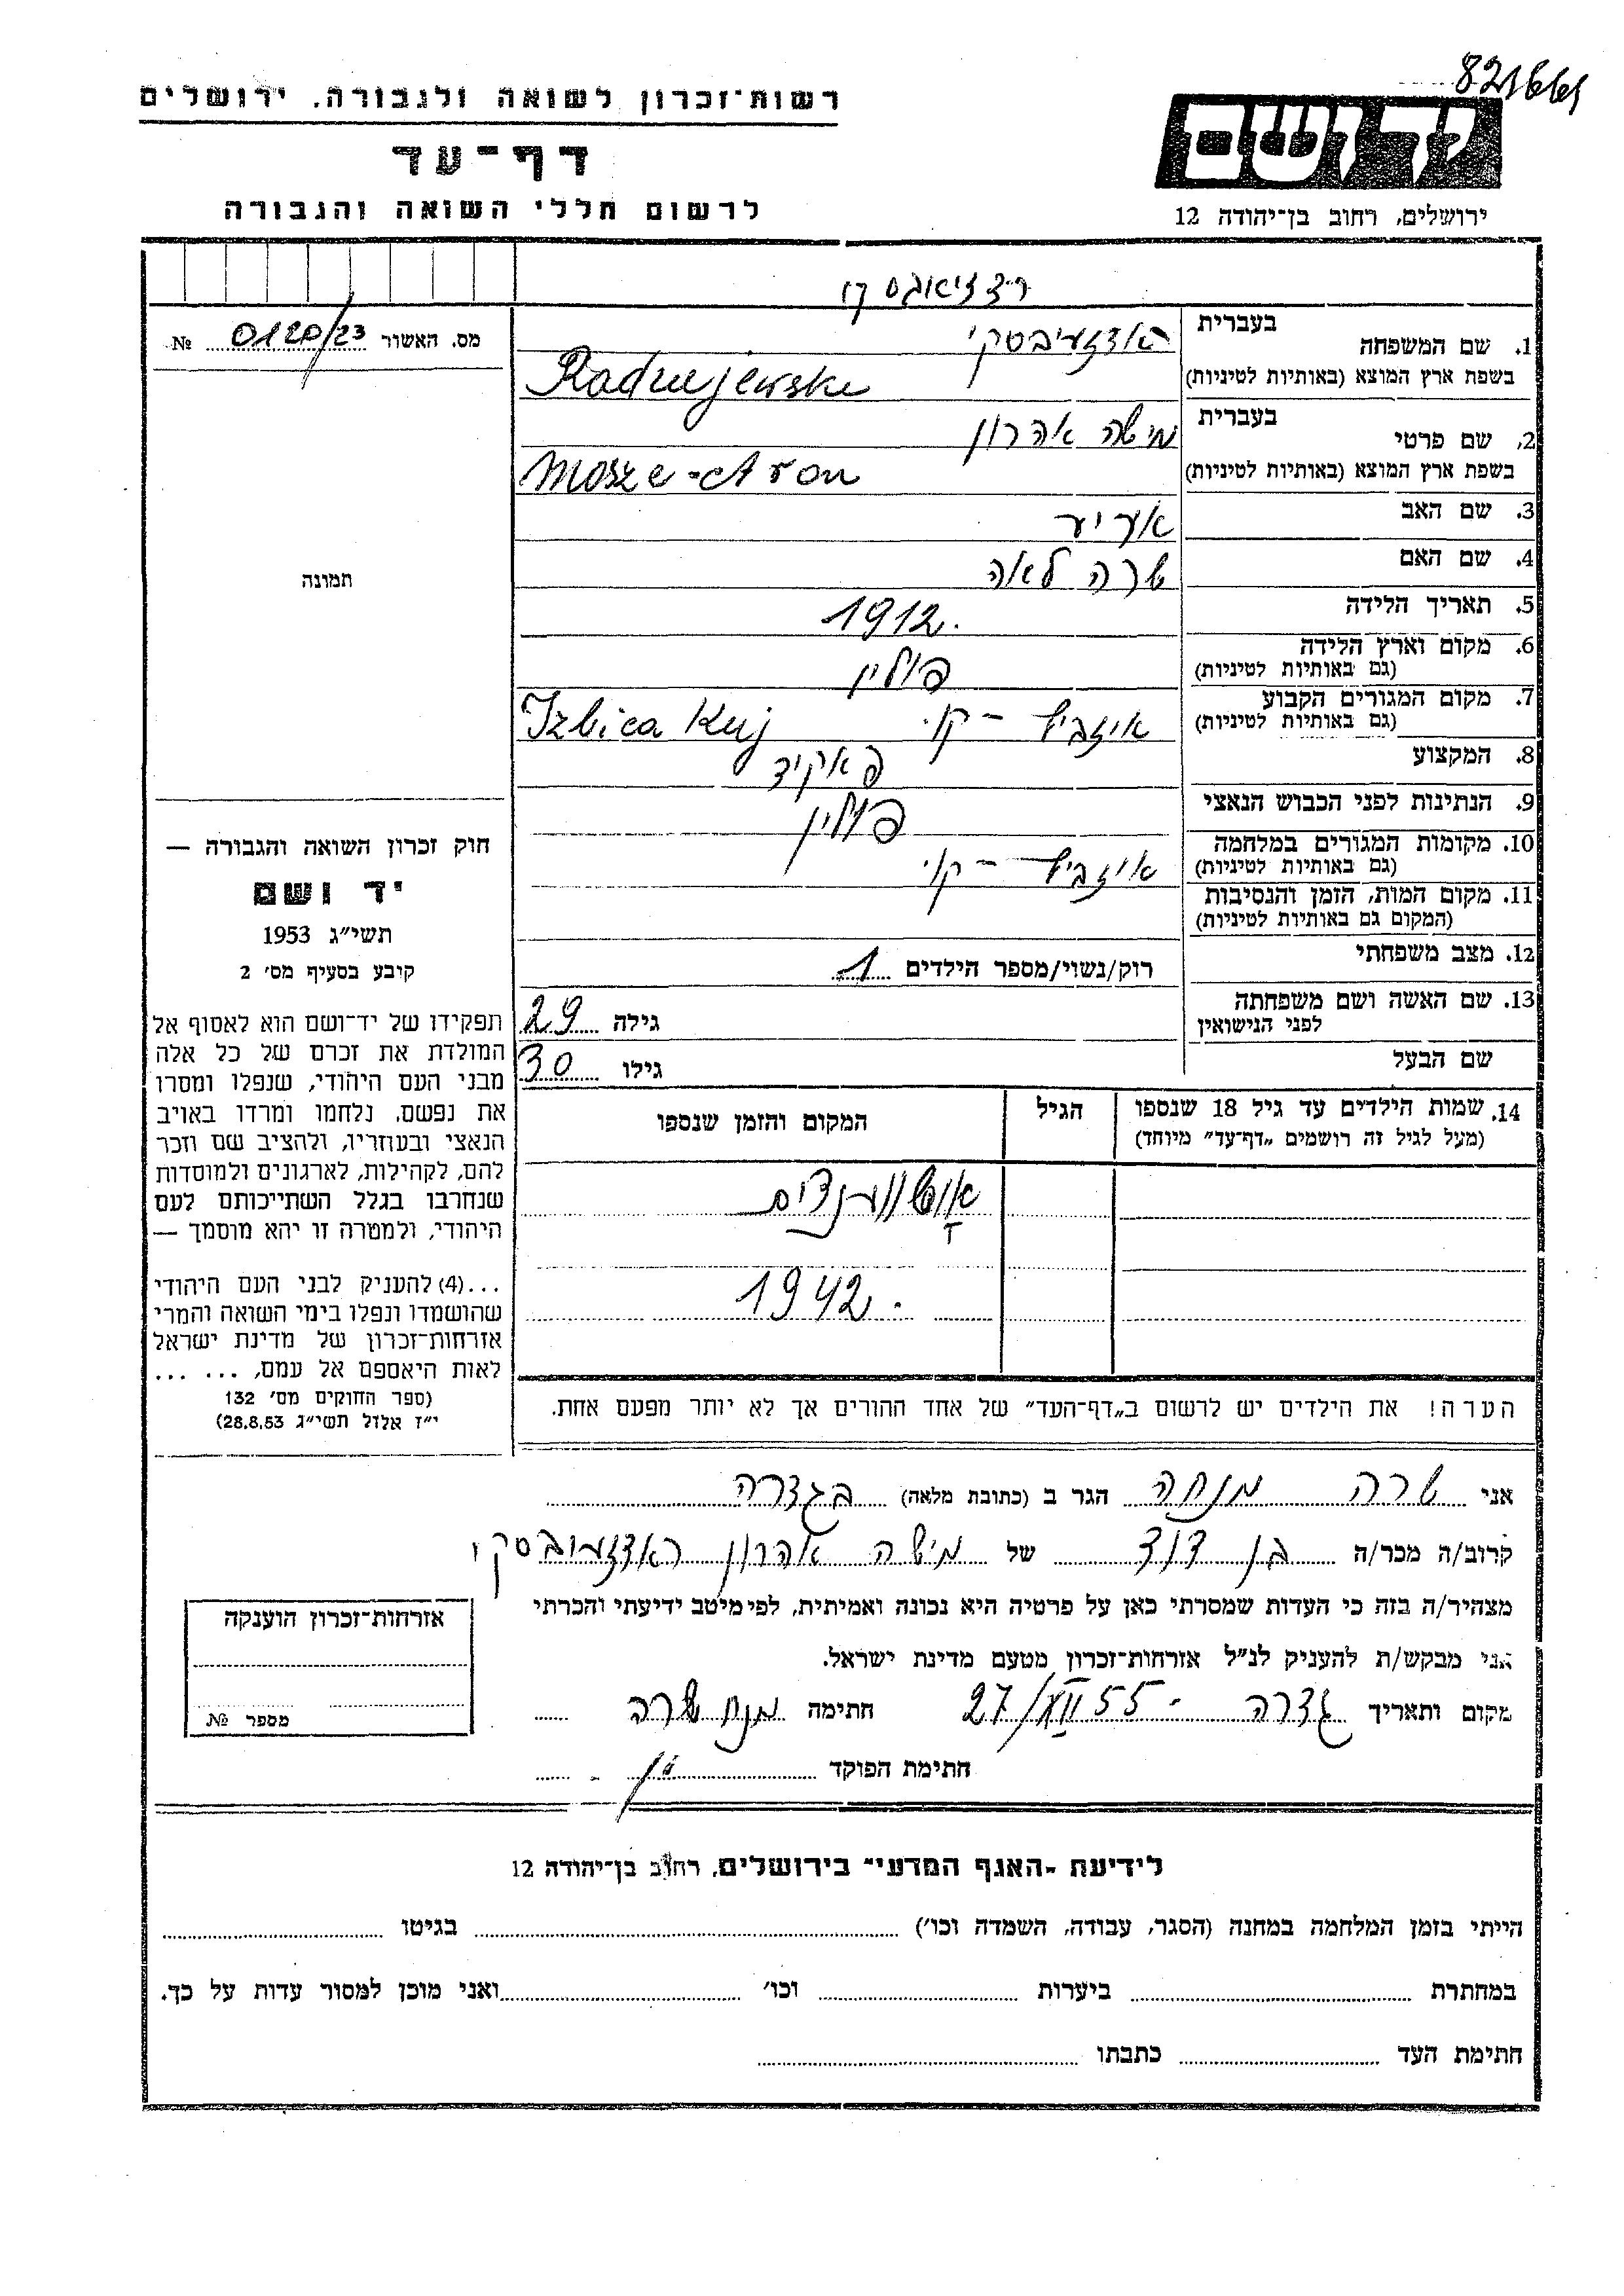 821661
רשות־זכרון לשואה ולגבורה, ירושלים
דף־עד
לרשום חללי השואה והגבורה
יד ושם
ירושלים, רחוב בן־יהודה 12
מס. האשור 0120/23 №
1. שם המשפחה בעברית ראדזעיבסקי
בשפת ארץ המוצא (באותיות לטיניות) Radziejewski
2. שם פרטי בעברית מישה אהרון
בשפת ארץ המוצא (באותיות לטיניות) Mosze-Aron
3. שם האב
4. שם האם שרה לאה
5. תאריך הלידה 1912.
6. מקום וארץ הלידה פולין
(גם באותיות לטיניות)
7. מקום המגורים הקבוע איזביץ - קוי. Izbica Kuj
(גם באותיות לטיניות)
8. המקצוע פאקיד
9. הנתינות לפני הכבוש הנאצי פולין
10. מקומות המגורים במלחמה איזביץ - קוי
(גם באותיות לטיניות)
11. מקום המות, הזמן והנסיבות
(המקום גם באותיות לטיניות)
12. מצב משפחתי רוק/נשוי/מספר הילדים 1
13. שם האשה ושם משפחתה גילה 29
לפני הנישואין
שם הבעל גילו 30
14. שמות הילדים עד גיל 18 שנספו הגיל המקום והזמן שנספו
(מעל לגיל זה רושמים „דף־עד” מיוחד)
1942.
הערה! את הילדים יש לרשום ב„דף־העד” של אחד ההורים אך לא יותר מפעם אחת.
תמונה
חוק זכרון השואה והגבורה —
יד ושם
תשי״ג 1953
קובע בסעיף מס׳ 2
תפקידו של יד־ושם הוא לאסוף אל
המולדת את זכרם של כל אלה
מבני העם היהודי, שנפלו ומסרו
את נפשם, נלחמו ומרדו באויב
הנאצי ובעוזריו, ולהציב שם וזכר
להם, לקהילות, לארגונים ולמוסדות
שנחרבו בגלל השתייכותם לעם
היהודי, ולמטרה זו יהא מוסמך —
...(4) להעניק לבני העם היהודי
שהושמדו ונפלו בימי השואה והמרי
אזרחות־זכרון של מדינת ישראל
לאות היאספם אל עמם, ... ...
(ספר החוקים מס׳ 132
י״ז אלול תשי״ג 28.8.53)
אני שרה מנחה הגר ב (כתובת מלאה) בגדרה
קרוב/ה מכר/ה בן דוד של מישה אהרון ראדזעיבסקי
מצהיר/ה בזה כי העדות שמסרתי כאן על פרטיה היא נכונה ואמיתית, לפי מיטב ידיעתי והכרתי
אני מבקש/ת להעניק לנ״ל אזרחות־זכרון מטעם מדינת ישראל.
מקום ותאריך גדרה 27/ 55 חתימה מנח שרה
חתימת הפוקד
אזרחות־זכרון הוענקה
מספר №
לידיעת „האגף המדעי” בירושלים, רחוב בן־יהודה 12
הייתי בזמן המלחמה במחנה (הסגר, עבודה, השמדה וכו׳) בגיטו
במחתרת ביערות וכו׳ ואני מוכן למסור עדות על כך.
חתימת העד כתבתו